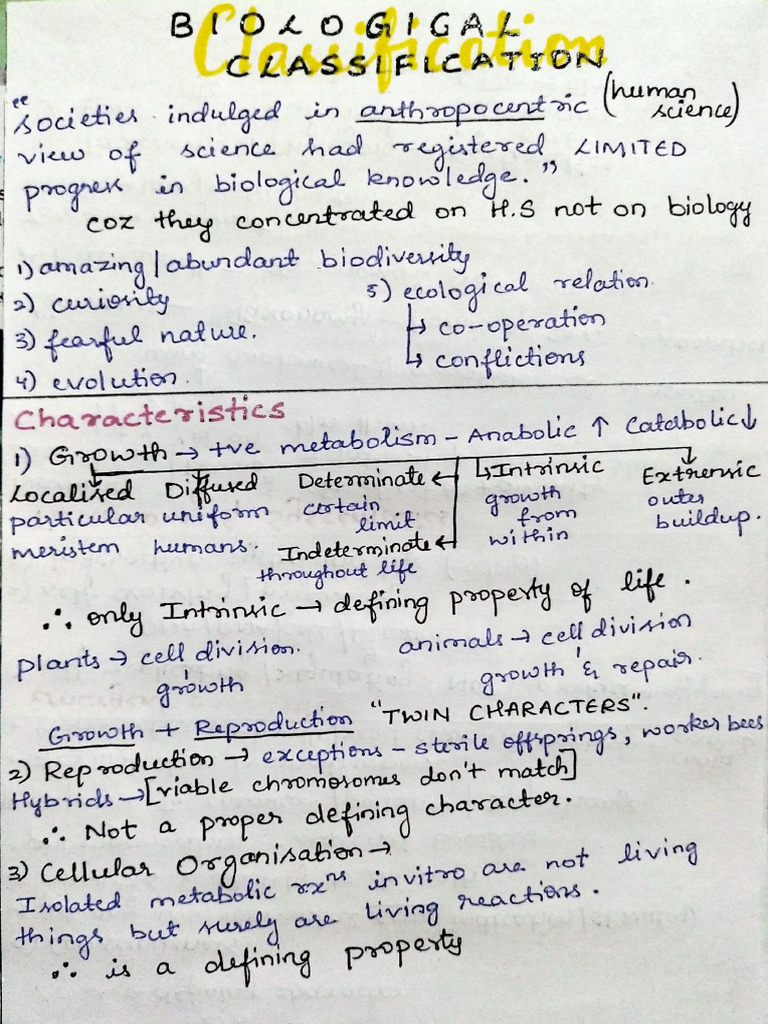 BIOLOGICAL
Classification
CLASSIFICATION
"Societies indulged in anthropocentric (human science)
view of science had registered LIMITED
progress in biological knowledge."
coz they concentrated on H.S not on biology
1) amazing/abundant biodiversity
2) curiosity
3) fearful nature.
4) evolution.
5) ecological relation.
↳ co-operation
↳ conflictions
Characteristics
1) Growth → +ve metabolism - Anabolic ↑ Catabolic ↓
Localised
particular
meristem
Diffused
uniform
humans.
Determinate
certain
limit
Indeterminate
throughout life
Intrinsic
growth
from
within
Extrensic
outer
buildup.
∴ only Intrinsic → defining property of life.
plants → cell division.
growth
animals → cell division
growth & repair.
Growth + Reproduction "TWIN CHARACTERS".
2) Reproduction → exceptions - sterile offsprings, worker bees
Hybrids → [viable chromosomes don't match]
∴ Not a proper defining character.
3) Cellular Organisation →
Isolated metabolic rxns invitro are not living
things but surely are living reactions.
∴ is a defining property